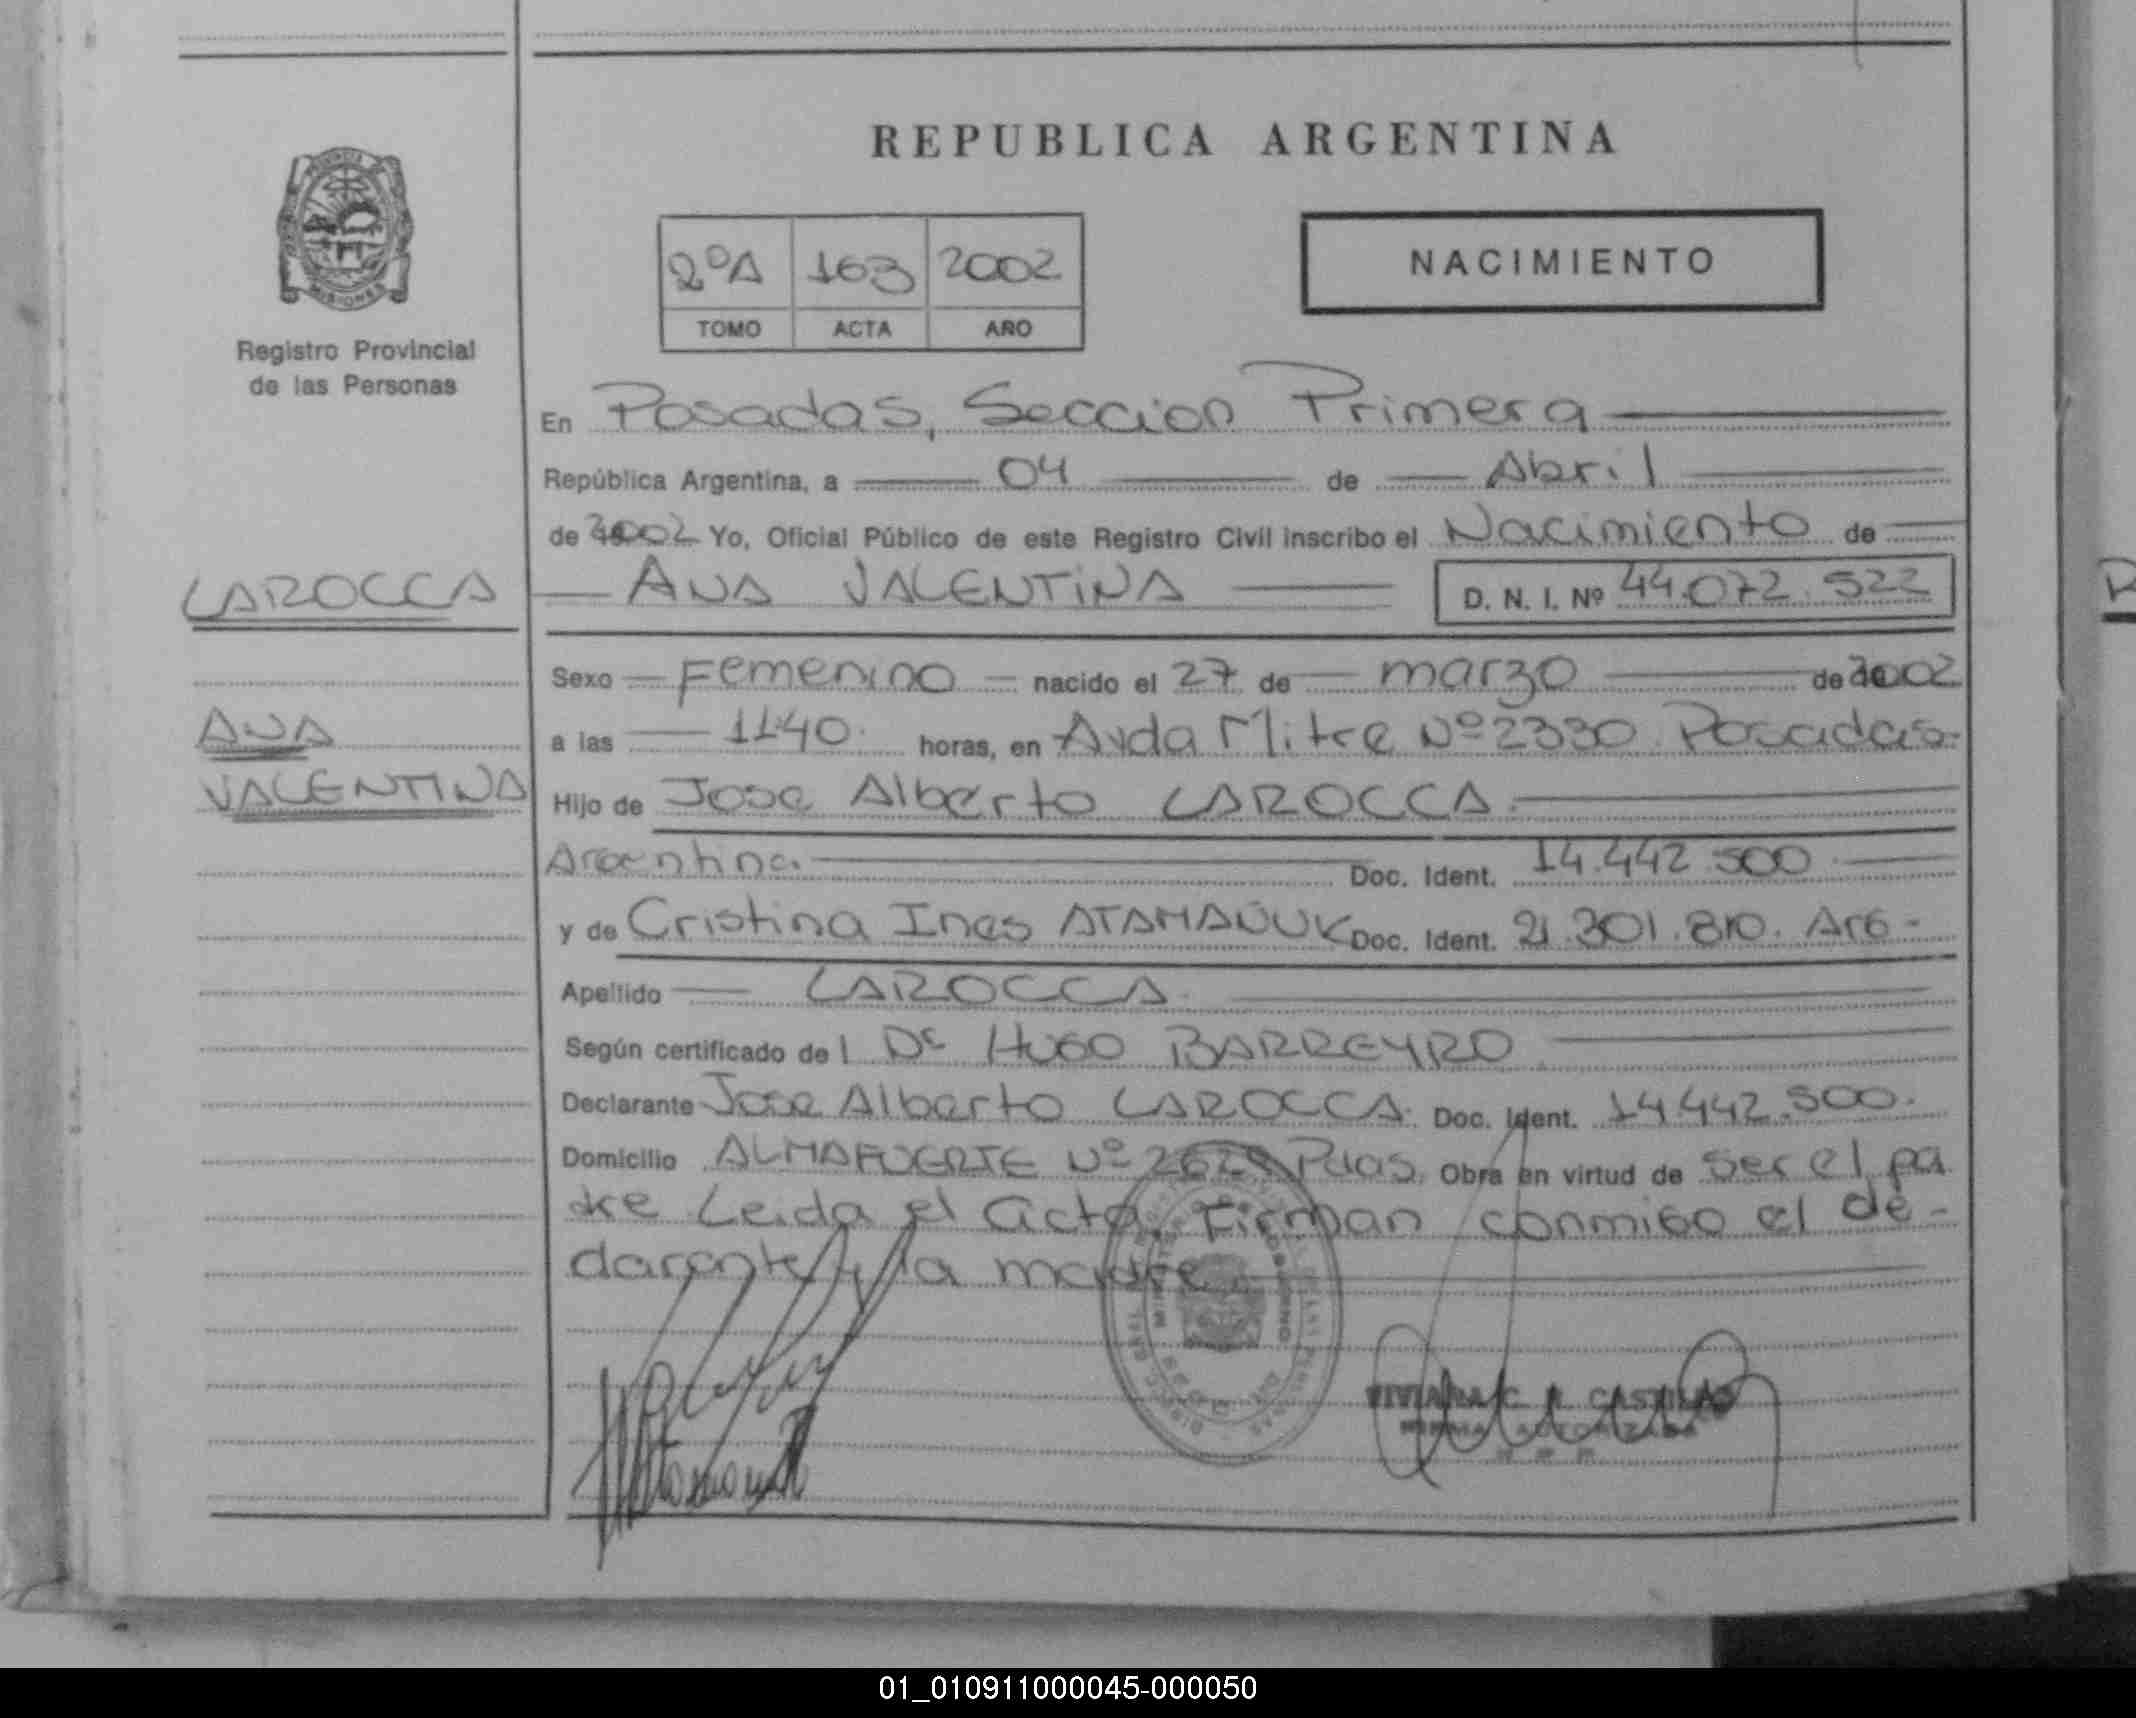 REPUBLICA ARGENTINA
MISIONES
Registro Provincial
de las Personas
2ºA 163 2002
TOMO ACTA AÑO
NACIMIENTO
En Posadas, Seccion Primera
República Argentina, a 04 de Abril
de 2002 Yo, Oficial Público de este Registro Civil inscribo el Nacimiento de
LAROCCA
ANA VALENTINA D. N. I. Nº 44.072.522
Sexo Femenino nacido el 27 de marzo de 2002
ANA
VALENTINA
a las 1140. horas, en Avda Mitre Nº 2330 Posadas
Hijo de Jose Alberto LAROCCA
Argentina. Doc. Ident. 14.442.500
y de Cristina Ines ATAMAÑUK Doc. Ident. 21.301.810. Arg-
Apellido LAROCCA
Según certificado del Dr HUGO BARREYRO
Declarante Jose Alberto LAROCCA. Doc. Ident. 14.442.500.
Domicilio ALMAFUERTE Nº Pdas. Obra en virtud de ser el pa
dre Leida el acta, Firman conmigo el de-
clarante y la madre
VIVIANA C. R.
01_010911000045-000050